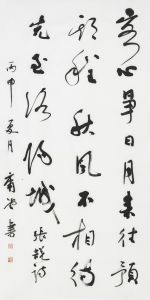 客心争日月来往预
期程秋风不相待
先至洛阳城 张说诗
丙申夏月